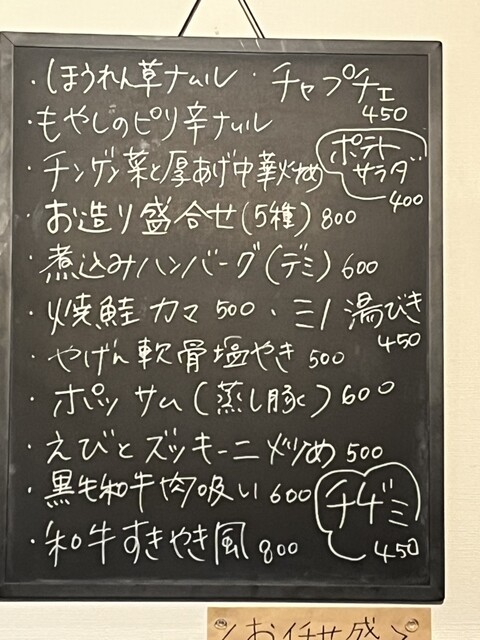 ・ほうれん草ナムル ・チャプチェ
450
・もやしのピリ辛ナムル
・チンゲン菜と厚あげ中華炒め
ポテト
サラダ
400
・お造り盛合せ(5種) 800
・煮込みハンバーグ(デミ) 600
・焼鮭カマ 500 ・ミノ湯びき
450
・やげん軟骨塩やき 500
・ポッサム(蒸し豚) 600
・えびとズッキーニ炒め 500
・黒毛和牛肉吸い 600
チヂミ
450
・和牛すきやき風 800